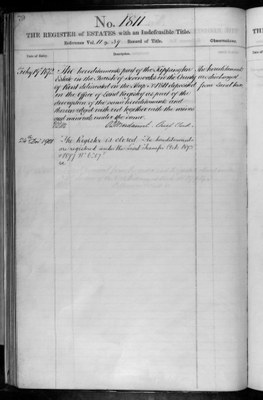 70
No. 1811
THE REGISTER of ESTATES, with an Indefeasible Title.
Reference Vol. 11 p. 39 Record of Title.
Date of Entry.
Description
Observations.
The hereditaments part of the Kippington
Estate in the Parish of Sevenoaks in the County
of Kent delineated on the Map deposited
in the Office of Land Registry as part of the
description of the same hereditaments and
thereon edged with red together with the mines
and minerals under the same.
The hereditaments
are discharged
from Land tax
Chief Clerk.
Dec 1911
The Register is closed. The hereditaments
are registered under the Land Transfer Acts 1875
& 1897